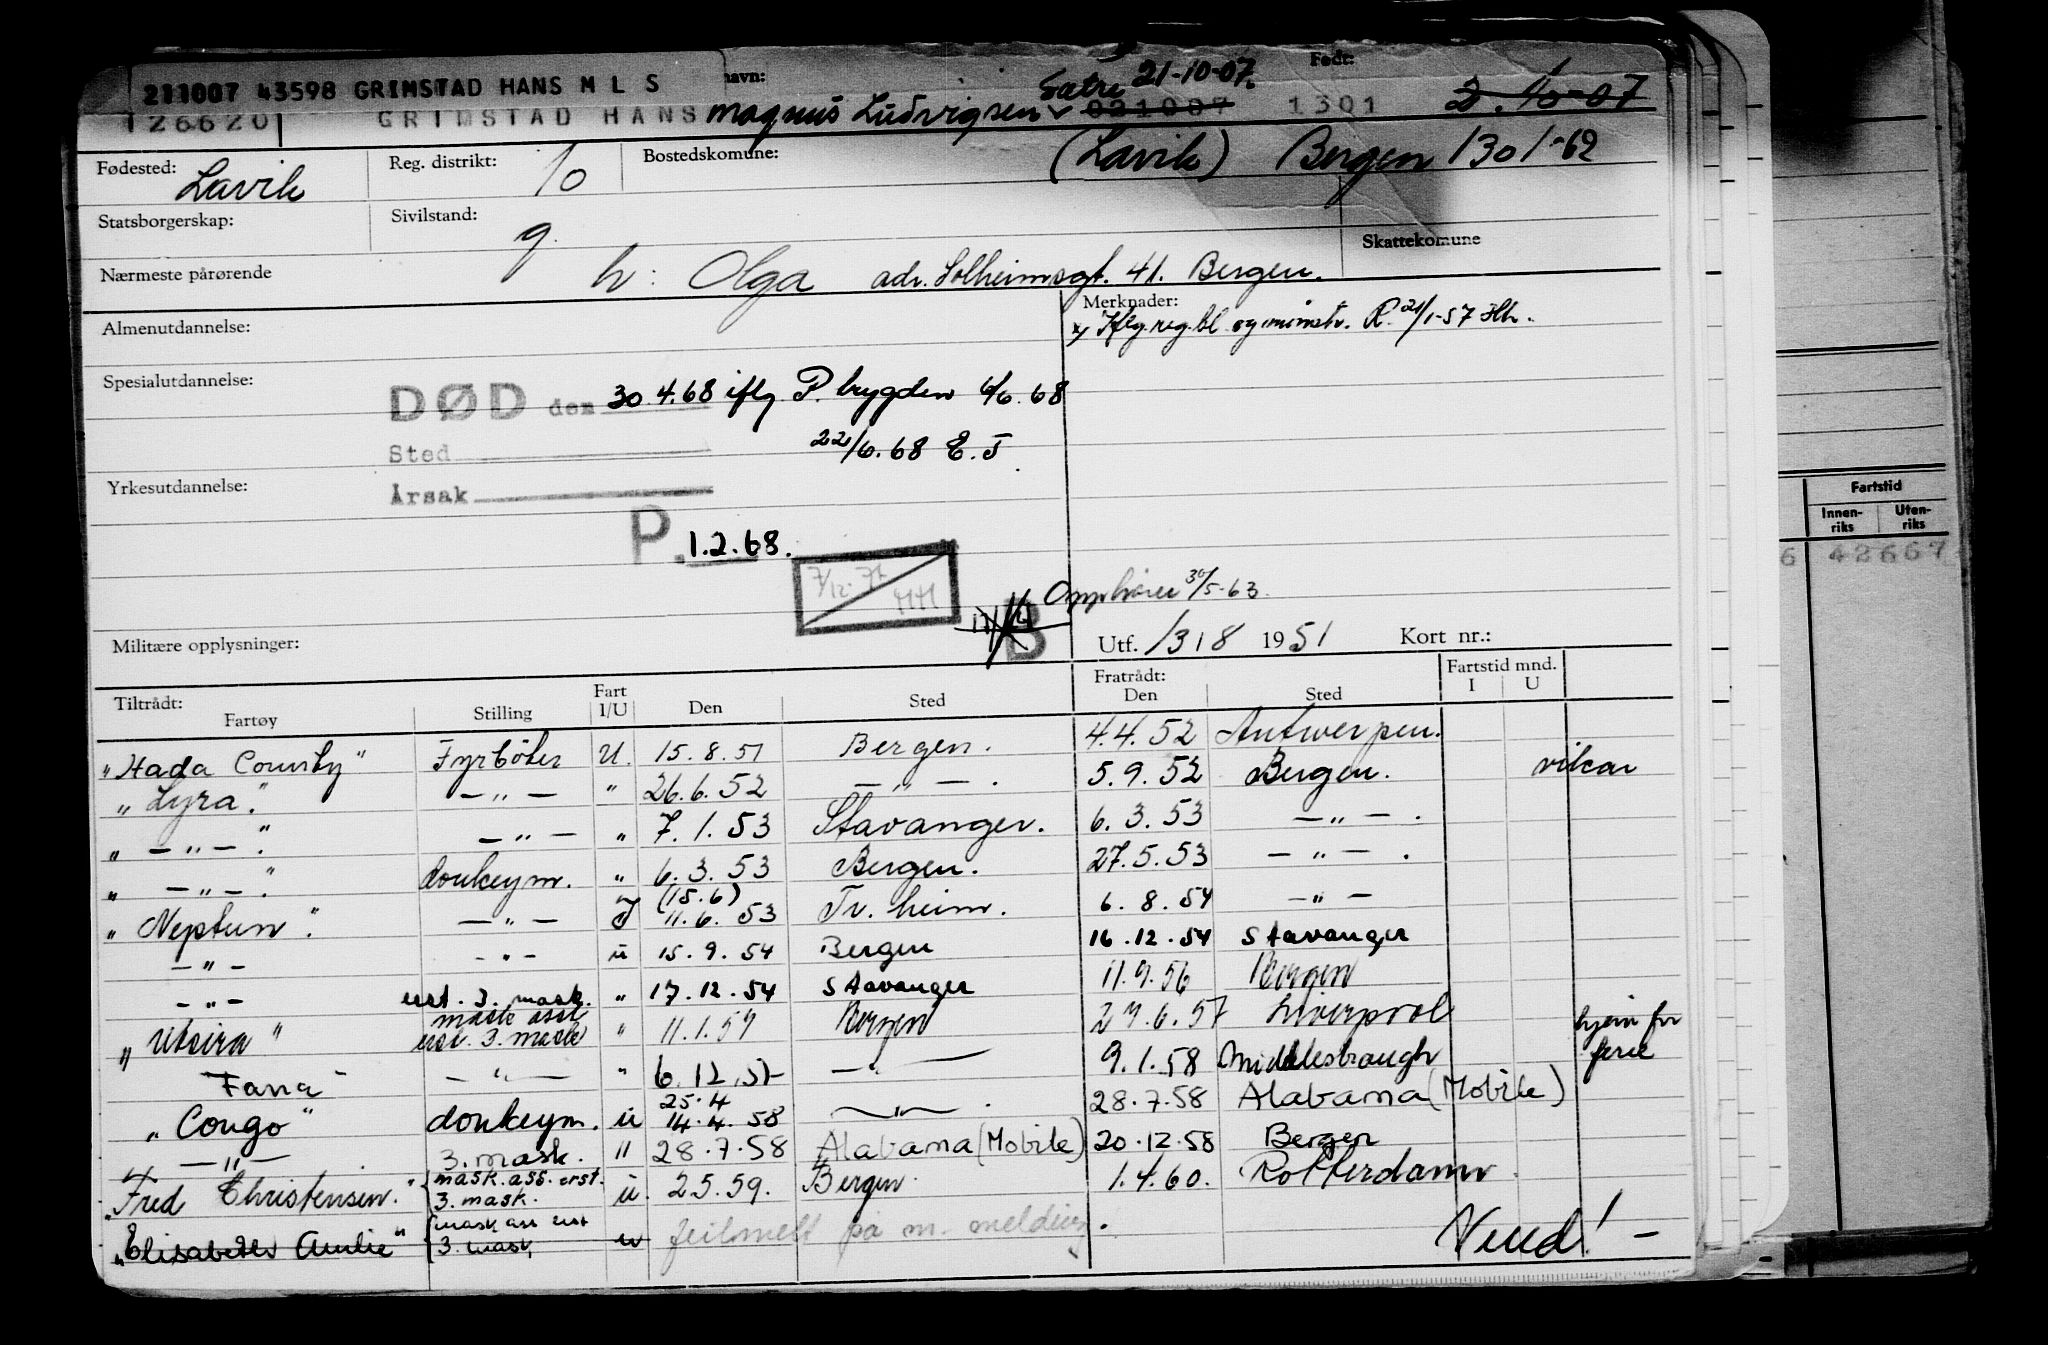 211007 43598 GRIMSTAD HANS M L S navn: Født:
126620 GRIMSTAD HANS Magnus Ludvigsen Sætre 21-10-07. 021007 1301 2.10-07
Fødested: Lavik Reg. distrikt: 10 Bostedskomune: (Lavik) Bergen 1301-62
Statsborgerskap: Sivilstand: g. Skattekomune
Nærmeste pårørende h: Olga adr. Solheimsgt. 41. Bergen.
Almenutdannelse: Merknader:
x) Iflg. reg. bl. og mønstr. R. 21/1-57
Spesialutdannelse: DØD den 30.4.68 iflg P. trygden 6/6.68
Sted 22/6.68 E.J
Yrkesutdannelse: Årsak
P. 1.2.68.
7/12-71 HH
Opphører 30/5-63.
B
Militære opplysninger: Utf. 1318 1951 Kort nr.:
Tiltrådt: Fratrådt: Fartstid mnd.
Fartøy Stilling Fart I/U Den Sted Den Sted I U
"Hada County" Fyrbøter U. 15.8.51 Bergen. 4.4.52 Antwerpen.
"Lyra". — " — " 26.6.52 — " — . 5.9.52 Bergen. vikar
" — " — ". — " — " 7.1.53 Stavanger. 6.3.53 — " — .
" — " — ". donkeym. " 6.3.53 Bergen. 27.5.53 — " — .
"Neptun". — " — I (15.6) 11.6.53 Tr. heim. 6.8.54 — " —
— " — — " — u 15.9.54 Bergen 16.12.54 Stavanger
— " — erst. 3. mask. " 17.12.54 Stavanger 11.9.56 Bergen
"Utsira" mask asst erst. 3. mask " 11.1.57 Bergen 29.6.57 Liverpool hjem for ferie
Fana — " — " 6.12.57 — " — 9.1.58 Middlesbraugh
"Congo" donkeym. u 25.4 14.4.58 — " — . 28.7.58 Alabama (Mobile)
— " — 3. mask. " 28.7.58 Alabama (Mobile) 20.12.58 Bergen
"Fred Christensen." mask. ass. erst. 3. mask. u. 2.5.59. Bergen. 1.4.60. Rotterdam.
"Elisabeth Amlie" mask ass erst 3. mask, u feilmelt på m. melding.
Vend! —
Fartstid
Innen-riks Uten-riks
6 42667